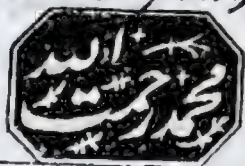 محمد رحمت الله